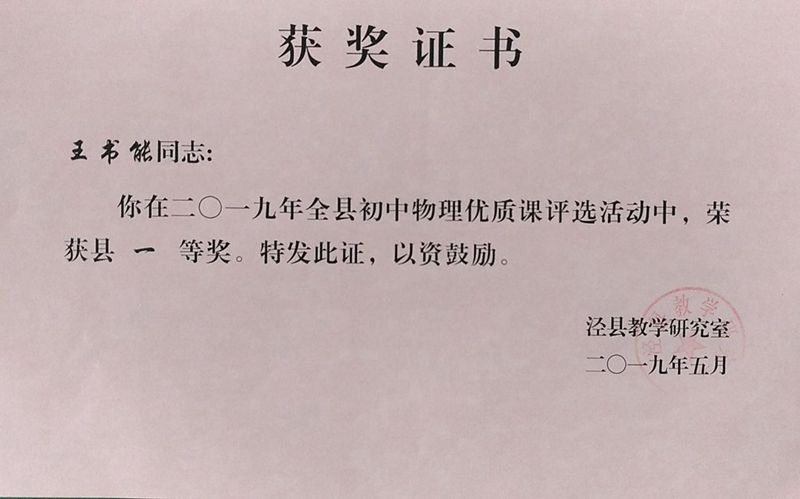 获奖证书
王书能同志：
你在二〇一九年全县初中物理优质课评选活动中，荣
获县 一 等奖。特发此证，以资鼓励。
泾县教学研究室
二〇一九年五月